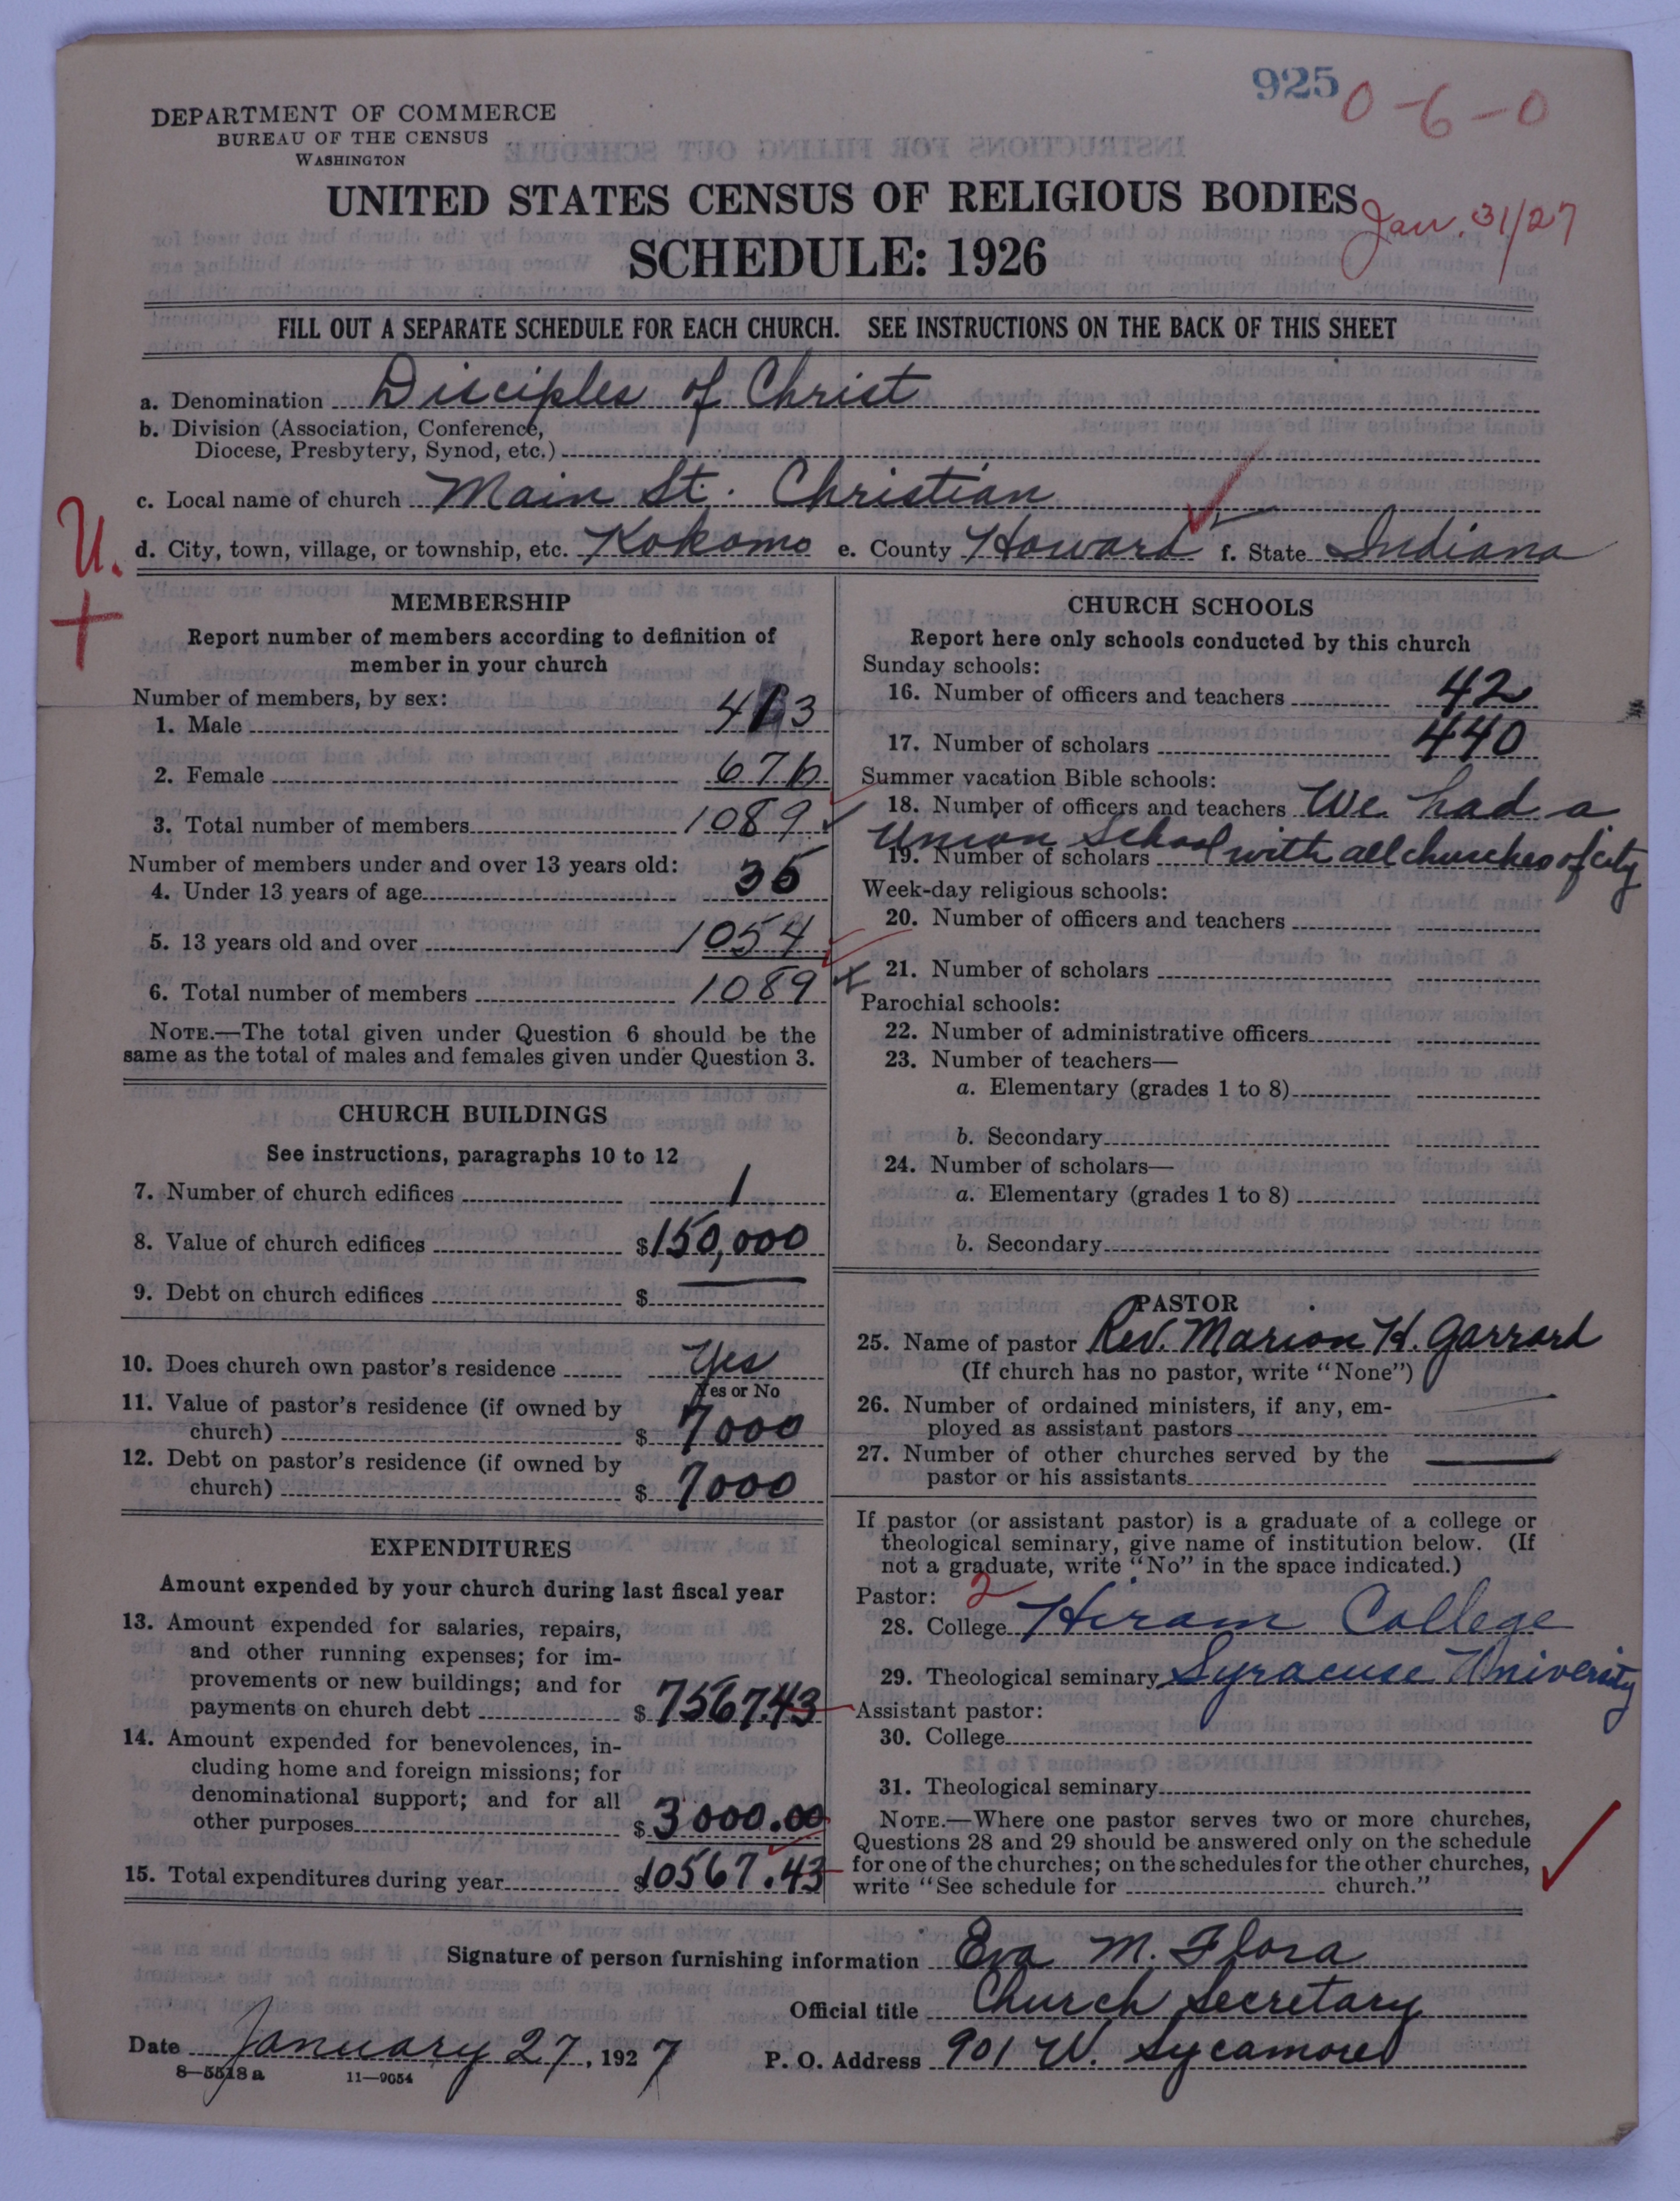 925 0-6-0
DEPARTMENT OF COMMERCE
BUREAU OF THE CENSUS
WASHINGTON
UNITED STATES CENSUS OF RELIGIOUS BODIES
Jan. 31/27
SCHEDULE: 1926
FILL OUT A SEPARATE SCHEDULE FOR EACH CHURCH. SEE INSTRUCTIONS ON THE BACK OF THIS SHEET
a. Denomination Disciples of Christ
b. Division (Association, Conference,
Diocese, Presbytery, Synod, etc.)
c. Local name of church Main St. Christian
d. City, town, village, or township, etc. Kokomo e. County Howard f. State Indiana
U.
+
MEMBERSHIP
Report number of members according to definition of
member in your church
Number of members, by sex:
1. Male 413
2. Female 676
3. Total number of members 1089
Number of members under and over 13 years old:
4. Under 13 years of age 35
5. 13 years old and over 1054
6. Total number of members 1089
NOTE.—The total given under Question 6 should be the
same as the total of males and females given under Question 3.
CHURCH BUILDINGS
See instructions, paragraphs 10 to 12
7. Number of church edifices 1
8. Value of church edifices $150,000
9. Debt on church edifices $
10. Does church own pastor's residence Yes
Yes or No
11. Value of pastor's residence (if owned by
church) $ 7000
12. Debt on pastor's residence (if owned by
church) $ 7000
EXPENDITURES
Amount expended by your church during last fiscal year
13. Amount expended for salaries, repairs,
and other running expenses; for im-
provements or new buildings; and for
payments on church debt $ 7567.43
14. Amount expended for benevolences, in-
cluding home and foreign missions; for
denominational support; and for all
other purposes $ 3000.00
15. Total expenditures during year $10567.43
CHURCH SCHOOLS
Report here only schools conducted by this church
Sunday schools:
16. Number of officers and teachers 42
17. Number of scholars 440
Summer vacation Bible schools:
18. Number of officers and teachers We had a
Union School with all churches of city
19. Number of scholars
Week-day religious schools:
20. Number of officers and teachers
21. Number of scholars
Parochial schools:
22. Number of administrative officers
23. Number of teachers—
a. Elementary (grades 1 to 8)
b. Secondary
24. Number of scholars—
a. Elementary (grades 1 to 8)
b. Secondary
PASTOR
25. Name of pastor Rev. Marion H. Garrard
(If church has no pastor, write "None")
26. Number of ordained ministers, if any, em-
ployed as assistant pastors
27. Number of other churches served by the
pastor or his assistants
If pastor (or assistant pastor) is a graduate of a college or
theological seminary, give name of institution below. (If
not a graduate, write "No" in the space indicated.)
Pastor: 2
28. College Hiram College
29. Theological seminary Syracuse University
Assistant pastor:
30. College
31. Theological seminary
NOTE.—Where one pastor serves two or more churches,
Questions 28 and 29 should be answered only on the schedule
for one of the churches; on the schedules for the other churches,
write "See schedule for church."
Signature of person furnishing information Eva M. Flora
Official title Church Secretary
Date January 27, 1927 P. O. Address 901 W. Sycamore
8—5518a 11—9054